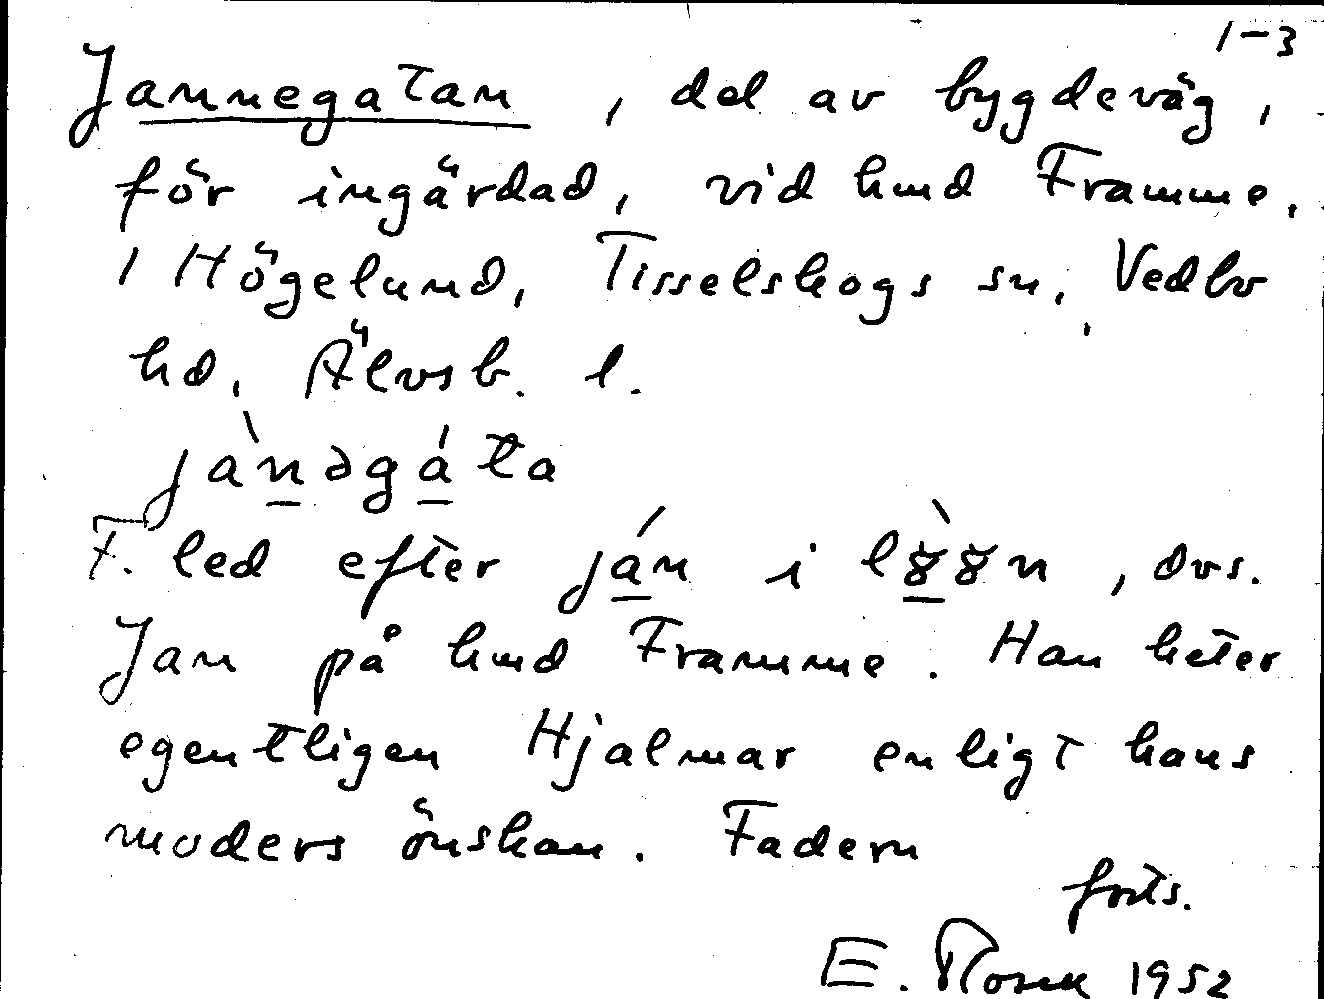 1-3
Jannegatan, del av bygdeväg,
för ingärdad, vid hmd Framme,
i Högelund, Tisselskogs sn, Vedbo
hd, Älvsb. l.
jànəgáta
F. led efter ján i lòȣn, dvs.
Jan på hmd Framme. Han heter
egentligen Hjalmar enligt hans
moders önskan. Fadern
forts.
E. 1952